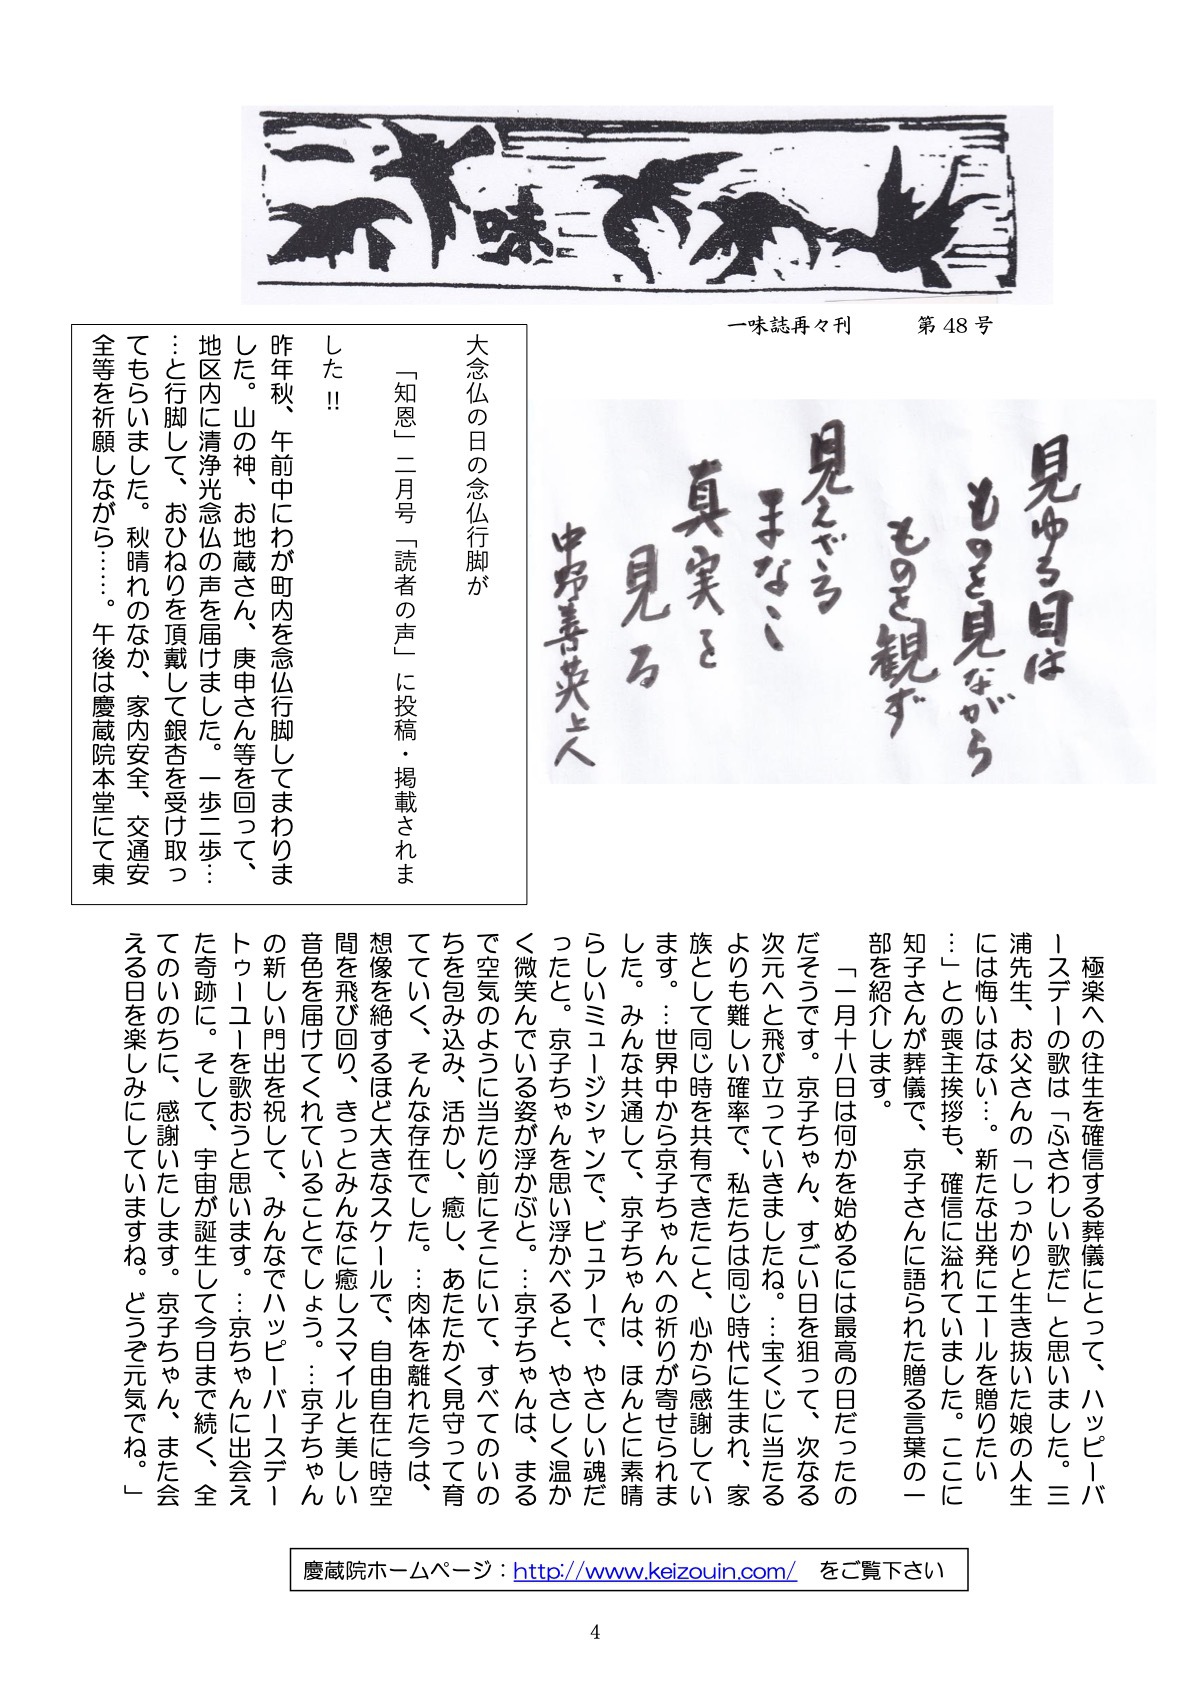 一味
一味誌再々刊　第 48 号
見ゆる目は
ものを見ながら
ものを観ず
見えざる
まなこ
真実を
見る
中野善英上人
大念仏の日の念仏行脚が
「知恩」二月号「読者の声」に投稿・掲載されま
した!!
昨年秋、午前中にわが町内を念仏行脚してまわりま
した。山の神、お地蔵さん、庚申さん等を回って、
地区内に清浄光念仏の声を届けました。一歩二歩…
…と行脚して、おひねりを頂戴して銀杏を受け取っ
てもらいました。秋晴れのなか、家内安全、交通安
全等を祈願しながら……。午後は慶蔵院本堂にて東
極楽への往生を確信する葬儀にとって、ハッピーバ
ースデーの歌は「ふさわしい歌だ」と思いました。三
浦先生、お父さんの「しっかりと生き抜いた娘の人生
には悔いはない…。新たな出発にエールを贈りたい
…」との喪主挨拶も、確信に溢れていました。ここに
知子さんが葬儀で、京子さんに語られた贈る言葉の一
部を紹介します。
「一月十八日は何かを始めるには最高の日だったの
だそうです。京子ちゃん、すごい日を狙って、次なる
次元へと飛び立っていきましたね。…宝くじに当たる
よりも難しい確率で、私たちは同じ時代に生まれ、家
族として同じ時を共有できたこと、心から感謝してい
ます。…世界中から京子ちゃんへの祈りが寄せられま
した。みんな共通して、京子ちゃんは、ほんとに素晴
らしいミュージシャンで、ピュアーで、やさしい魂だ
ったと。京子ちゃんを思い浮かべると、やさしく温か
く微笑んでいる姿が浮かぶと。…京子ちゃんは、まる
で空気のように当たり前にそこにいて、すべてのいの
ちを包み込み、活かし、癒し、あたたかく見守って育
てていく、そんな存在でした。…肉体を離れた今は、
想像を絶するほど大きなスケールで、自由自在に時空
間を飛び回り、きっとみんなに癒しスマイルと美しい
音色を届けてくれていることでしょう。…京子ちゃん
の新しい門出を祝して、みんなでハッピーバースデー
トゥーユーを歌おうと思います。…京ちゃんに出会え
た奇跡に。そして、宇宙が誕生して今日まで続く、全
てのいのちに、感謝いたします。京子ちゃん、また会
える日を楽しみにしていますね。どうぞ元気でね。」
慶蔵院ホームページ：http://www.keizouin.com/　をご覧下さい
4